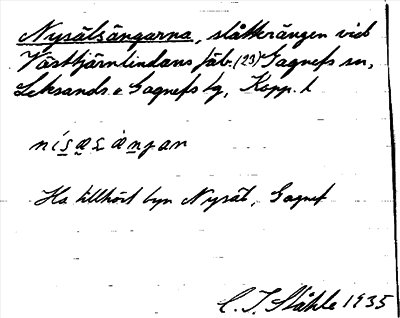 Nysätsängarna, slåtterängen vid
Västtjärnlindans fäb. (23) Gagnefs sn,
Leksands o Gagnefs tg, Kopp. l
Ha tillhört byn Nysät, Gagnef
C. I. Ståhle 1935